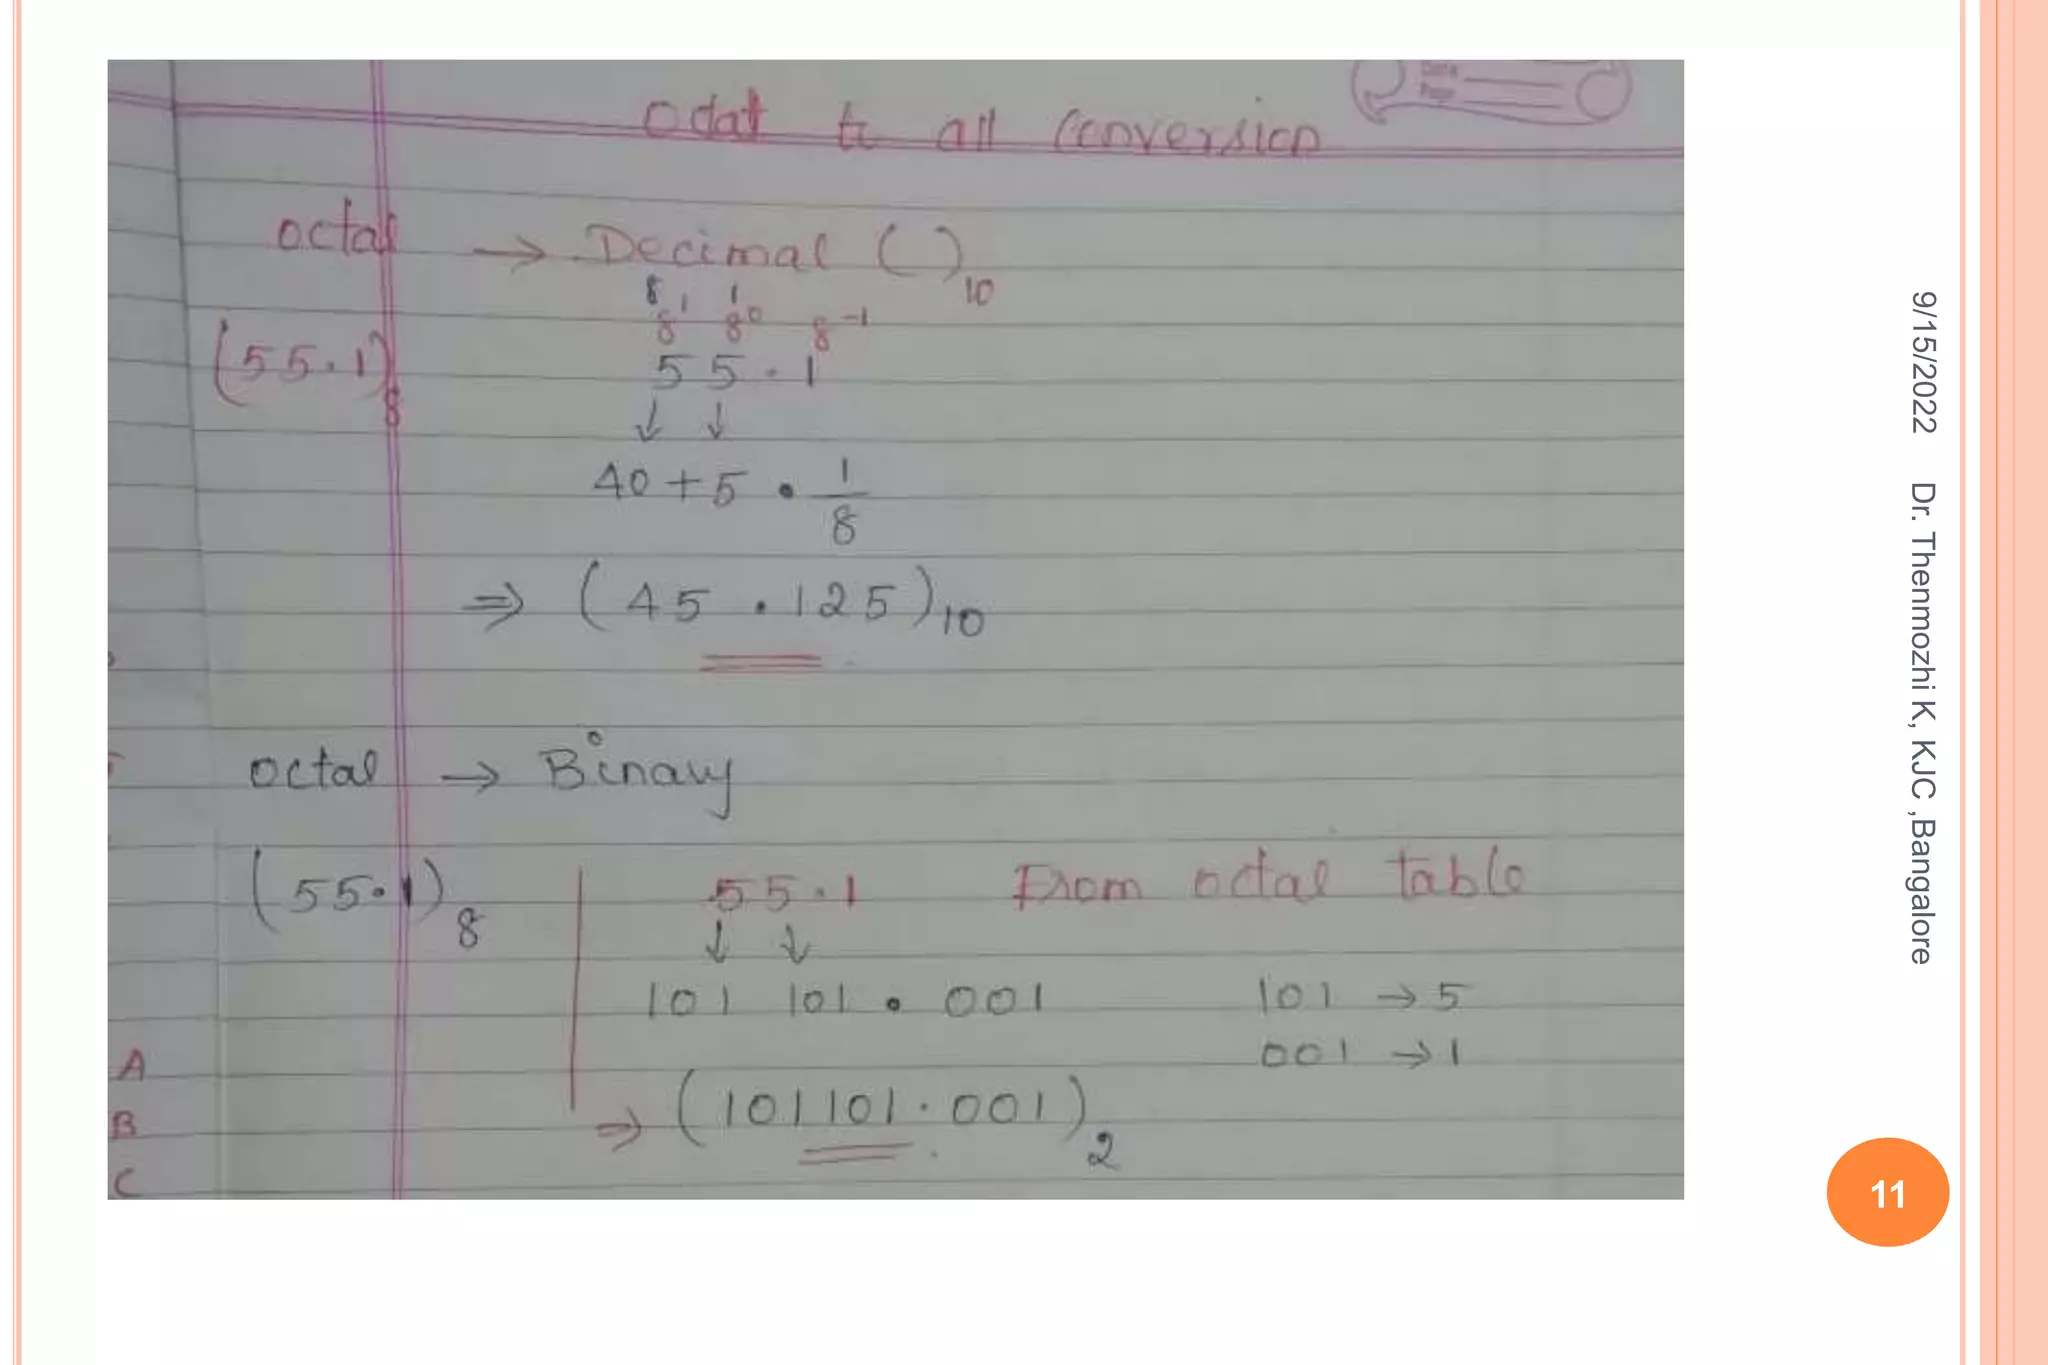 Date
Page
Octal to all Conversion
octal → Decimal ( )10
8 1
8¹ 8⁰ 8⁻¹
(55.1)8 55.1
↓ ↓
40+5 . 1/8
⇒ (45.125)10
octal → Binary
(55.1)8 55.1 From octal table
↓ ↓
101 101 . 001 101 → 5
001 → 1
⇒ (101101.001)2
A
B
C
9/15/2022 Dr. Thenmozhi K, KJC ,Bangalore
11